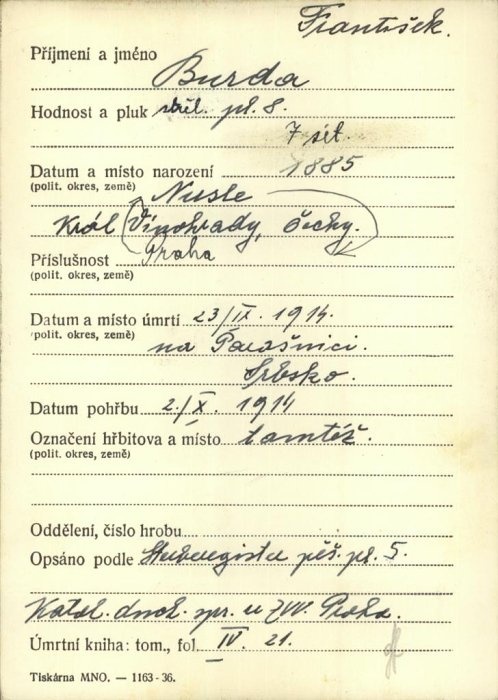 František.
Příjmení a jméno
Burda
Hodnost a pluk stř. pl. 8.
7 set.
Datum a místo narození 1885
(polit. okres, země) Nusle
Král Vinohrady, Čechy.
Příslušnost Praha
(polit. okres, země)
Datum a místo úmrtí 23/IX. 1914.
(polit. okres, země) na Parašnici.
Srbsko.
Datum pohřbu 2./X. 1914
Označení hřbitova a místo tamtéž.
(polit. okres, země)
Oddělení, číslo hrobu
Opsáno podle Sterberegistru pěš. pl. 5.
Katol. duch. spr. u ZVV. Praha.
Úmrtní kniha: tom., fol. IV. 21.
Tiskárna MNO. — 1163-36.